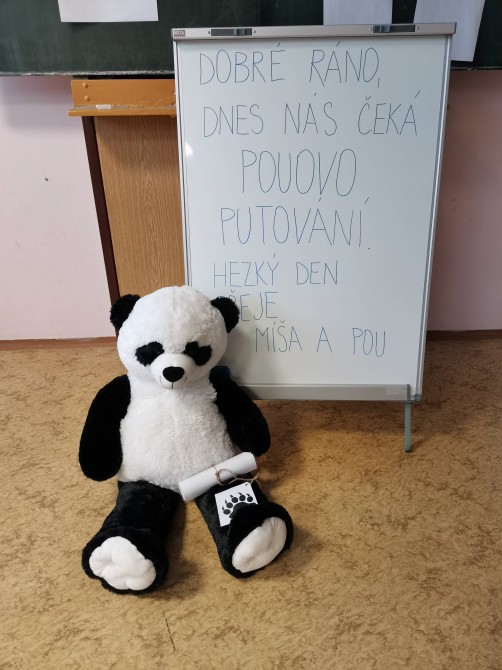 DOBRÉ RÁNO,
DNES NÁS ČEKÁ
POUOVO
PUTOVÁNÍ.
HEZKÝ DEN
PŘEJE
MÍŠA A POU